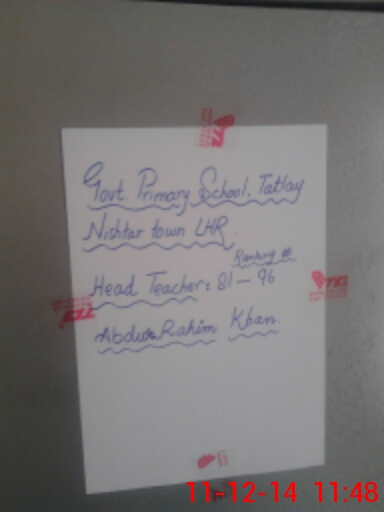 Govt Primary School. Tatlay
Nishtar town LHR.
Ranking #
Head Teacher: 81 – 96
Abdur Rahim Khan
11-12-14 11:48